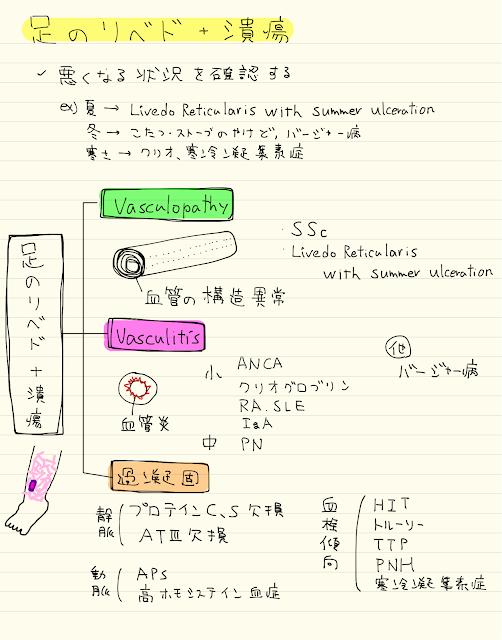 足のリベド + 潰瘍
✓ 悪くなる状況を確認する
ex) 夏 → Livedo Reticularis with summer ulceration
冬 → こたつ・ストーブのやけど, バージャー病
寒さ → クリオ、寒冷凝集素症
足のリベド + 潰瘍
Vasculopathy
血管の構造異常
・SSc
・Livedo Reticularis
with summer ulceration
Vasculitis
血管炎
小 ANCA
クリオグロブリン
RA. SLE
IgA
中 PN
他
バージャー病
過凝固
静脈
プロテインC、S 欠損
ATⅢ欠損
動脈
APs
高ホモシステイン血症
血栓傾向
HIT
トルーソー
TTP
PNH
寒冷凝集素症